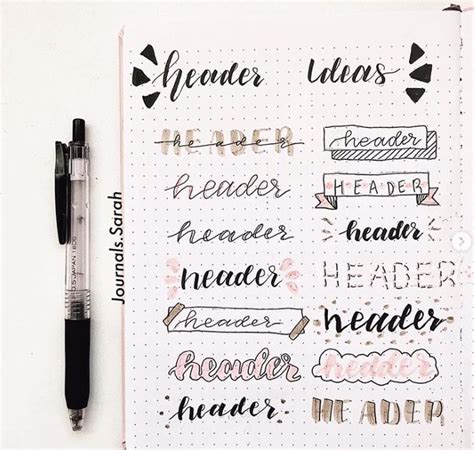 header Ideas
HEADER
header
header
header
header
header
header
header
header
HEADER
header
HEADER
header
header
HEADER
Journals.Sarah
0.5 JAPAN